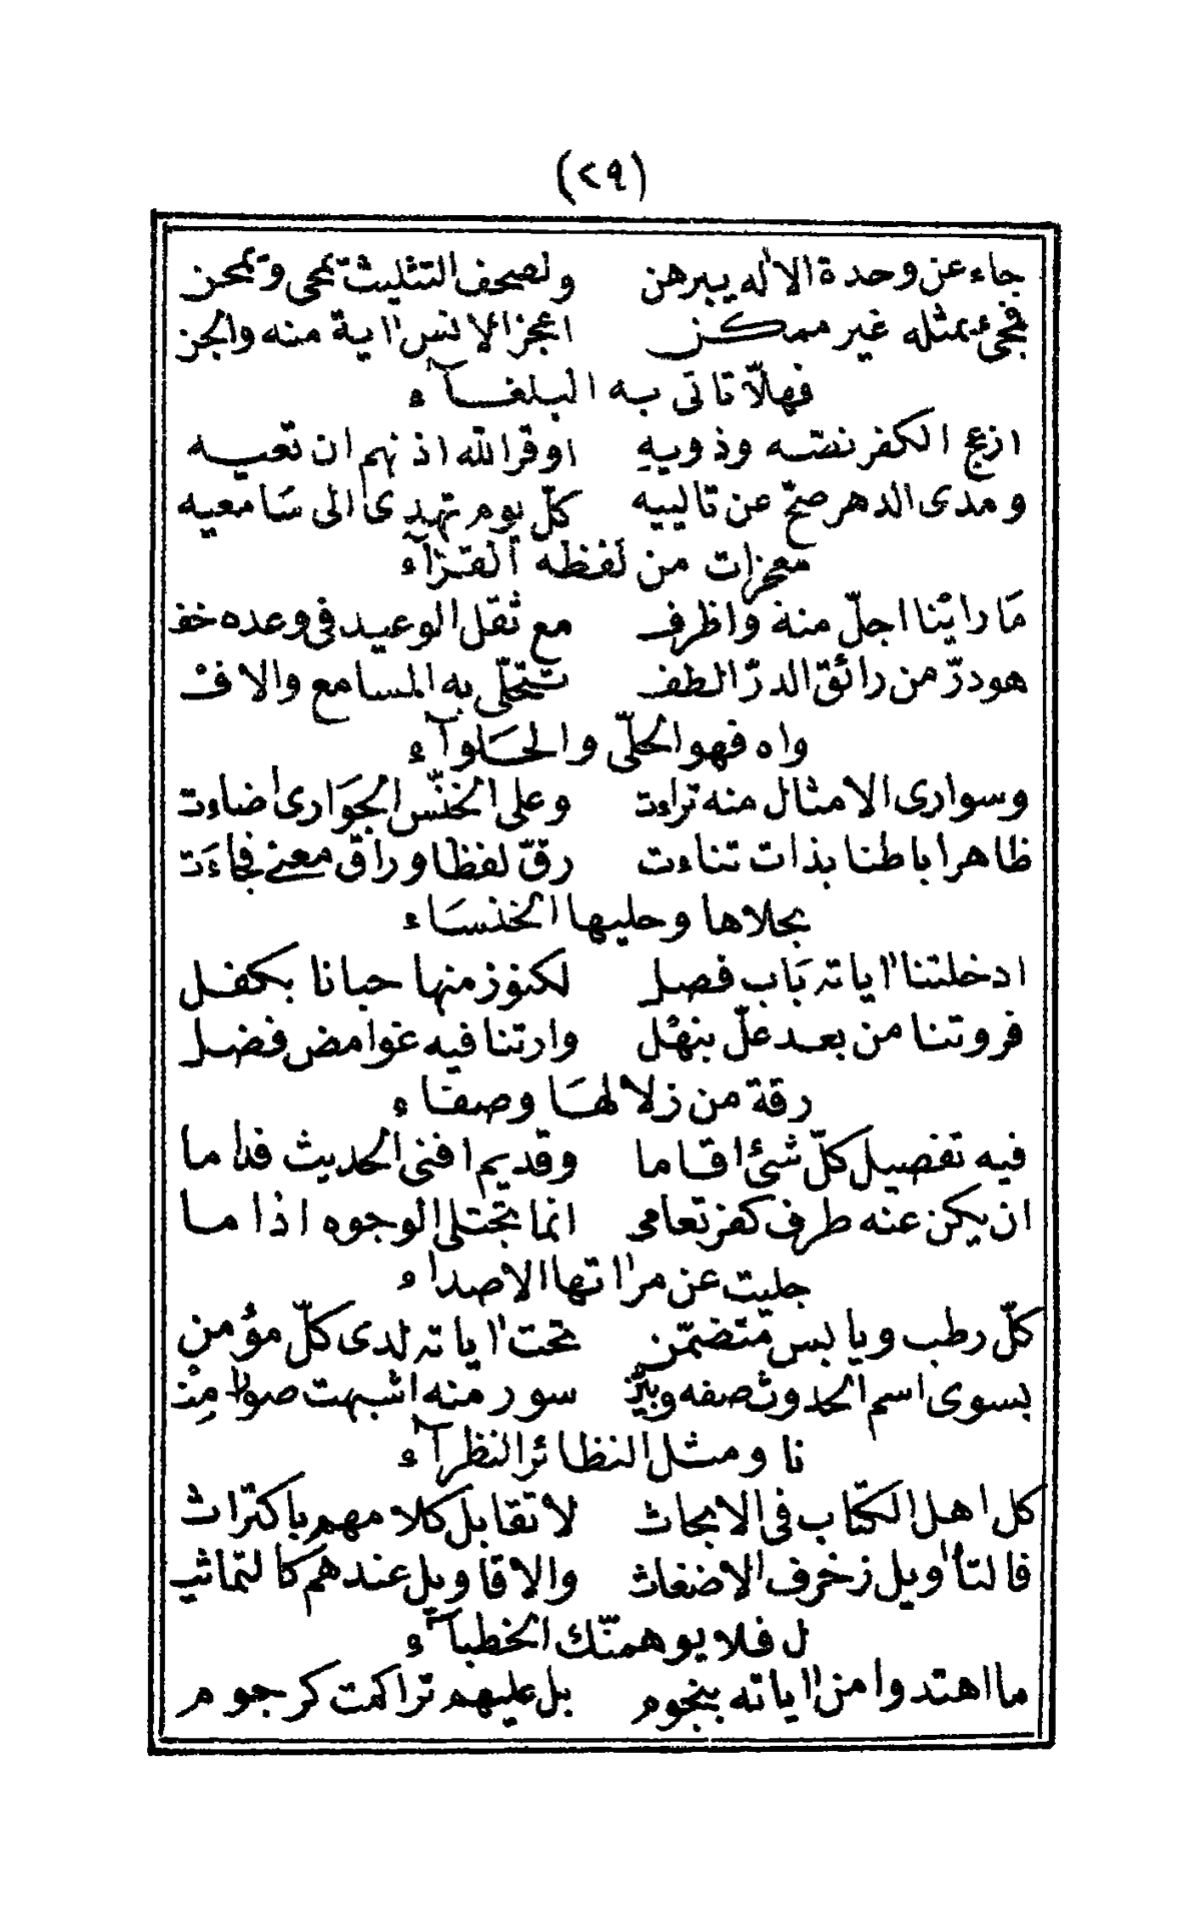 (٢٩)
جاء عن وحدة الاله يبرهن ولصحف التثليث تمحى وتمحن
فمجئ بمثله غير ممكن اعجز الانس اية منه والجن
فهلّا تاتى به البلغآء
ازعج الكفر نصّه وذويه اوقر الله اذنهم ان تعيه
ومدى الدهر صحّ عن تاليبه كلّ يوم تهدى الى سَامعيه
معجزات من لفظه القرّآء
مَا راينا اجلّ منه واظرف مع ثقل الوعيد فى وعده خف
هو درّ من رائق الدرّ الطف تتحلّى به المسامع والاف
واه فهو الحلّى والحَلوآء
وسوارى الامثال منه تراءت وعلى الخنّس الجوَارى اضاءت
ظاهرا باطنا بذات تناءت رقّ لفظا وراق معنى فجاءَت
بحلاها وحليها الخنسَاء
ادخلتنا اياته بَاب فصل لكنوز منها حبانا بكفل
فروتنا من بعد علّ بنهل وارتنا فيه غوامض فضل
رقة من زلالهَا وصفاء
فيه تفصيل كلّ شئ اقاما وقديم افنى الحديث فداما
ان يكن عنه طرف كفر تعامى انما تجتلى الوجوه اذا ما
جليت عن مراتها الاصداء
كلّ رطب ويابس متضمّن تحت اياته لدى كلّ مؤمن
بسوى اسم الحدوث صفه وبيّن سور منه اشبهت صورا مِنْ
نا ومثل النظائر النظرآء
كل اهل الكتاب فى الابحاث لا تقابل كلامهم باكتراث
فالتأويل زخرف الاضغاث والاقاويل عندهم كالتّماثيـ
ل فلا يوهمنّك الخطبآء
ما اهتدوا من اياته بنجوم بل عليهم تراكمت كرجوم